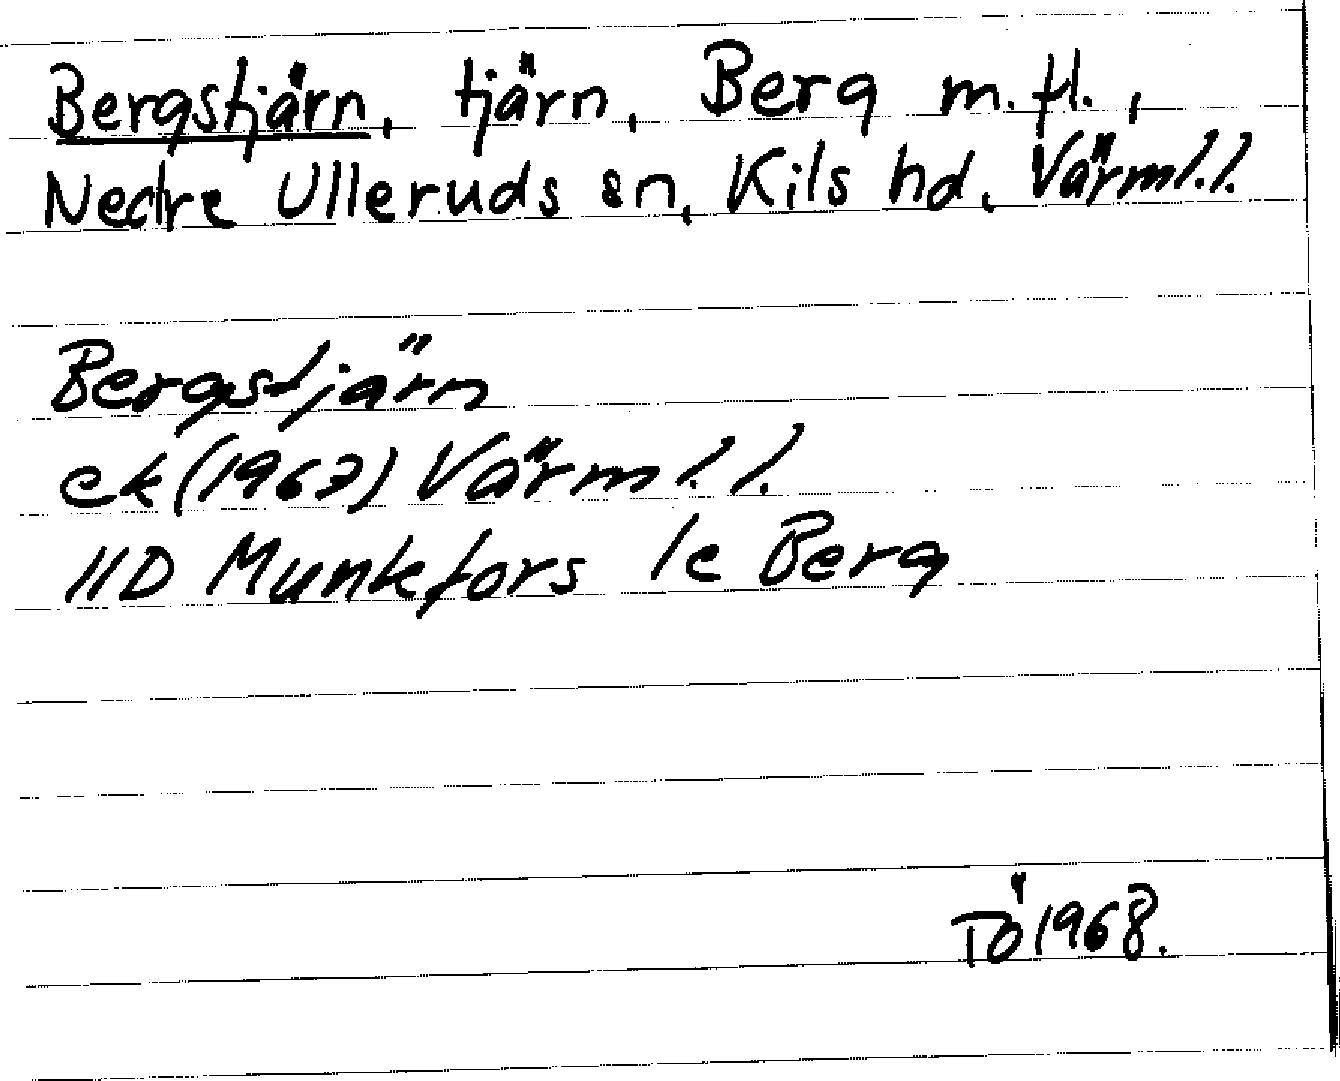 Bergstjärn, tjärn, Berg m.fl.,
Nedre Ulleruds sn, Kils hd. Värml.l.
Bergstjärn
ek(1967) Värml.l.
11D Munkfors 1c Berg
TÖ 1968.